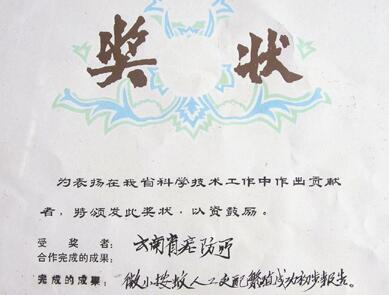 奖状
为表扬在我省科学技术工作中作出贡献
者，特颁发此奖状，以资鼓励。
受奖者：云南省疟防所
合作完成的成果：
完成的成果：微小按蚊人工交配繁殖成功初步报告。